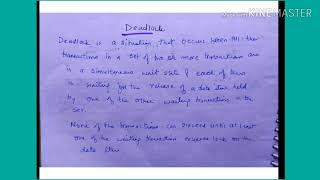 Made with KINEMASTER
Deadlock
Deadlock is a situation that occurs when all the
transactions in a set of two or more transactions are
in a simultaneous wait state & each of them
is waiting for the release of a data item held
by one of the other waiting transaction in the
set.
None of the transactions can proceed until at least
one of the waiting transaction release lock on the
data item